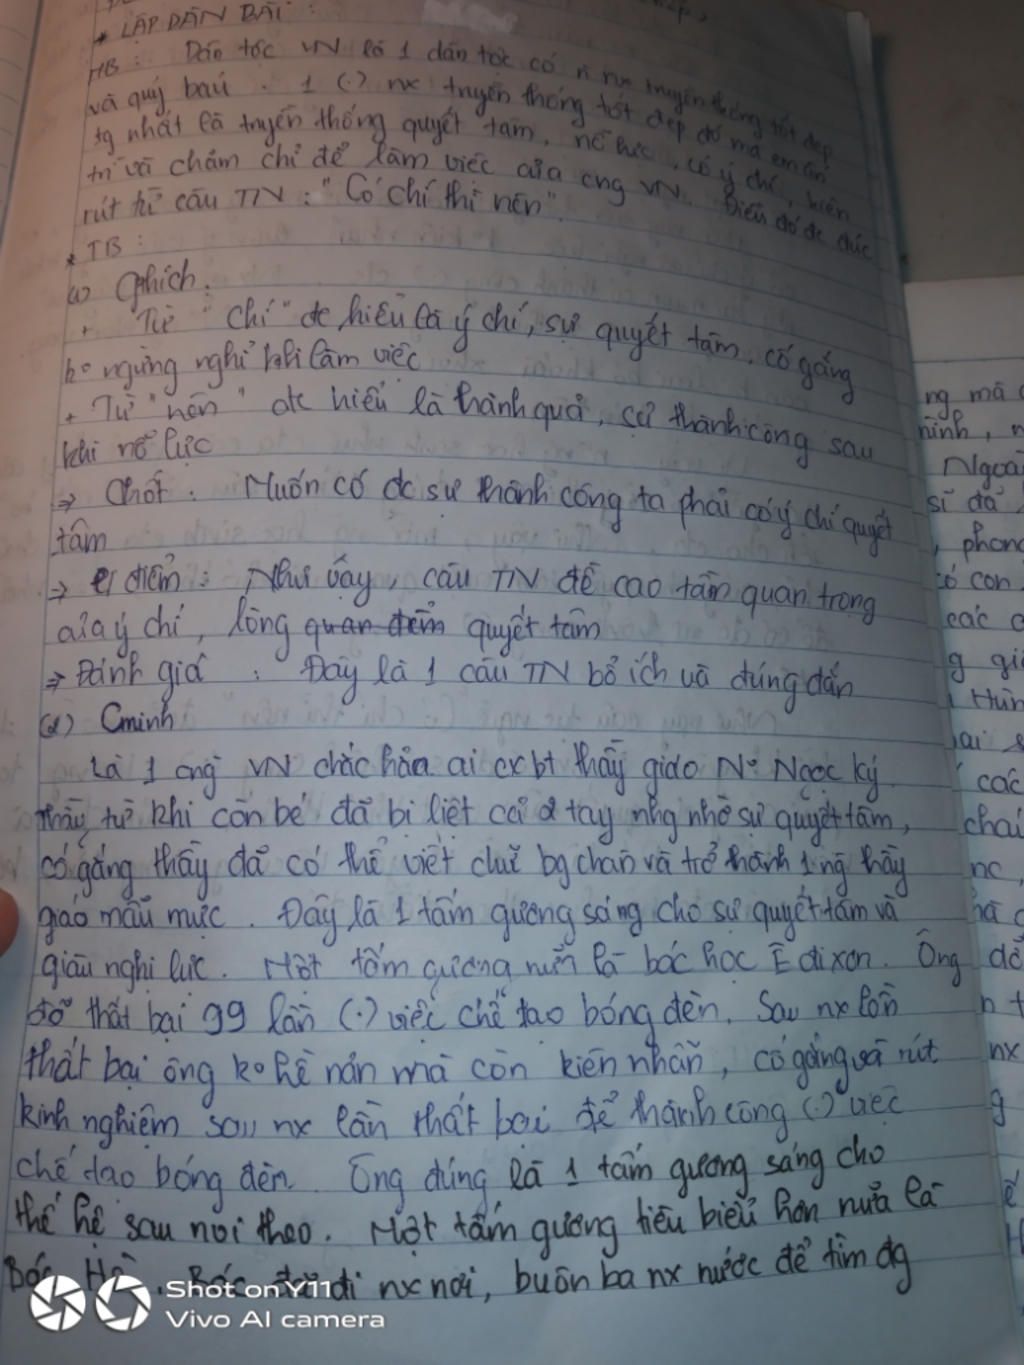 * LẬP DÀN BÀI :
MB : Dân tộc VN là 1 dân tộc có n nx truyền thống tốt đẹp
và quý báu . 1 (.) nx truyền thống tốt đẹp đó mà em ấn
tg nhất là truyền thống quyết tâm, nỗ lực, có ý chí, kiên
trì và chăm chỉ để làm việc của cng VN. Điều đó đc đúc
rút từ câu TN : "Có chí thì nên".
* TB :
(1) Gthích.
+ Từ "chí" đc hiểu là ý chí, sự quyết tâm, cố gắng
ko ngừng nghỉ khi làm việc
+ Từ "nên" đc hiểu là thành quả, sự thành công sau
khi nỗ lực
⇒ Chốt : Muốn có đc sự thành công ta phải có ý chí quyết
tâm
⇒ điểm : Như vậy, câu TN đề cao tầm quan trọng
của ý chí, lòng quan điểm quyết tâm
⇒ Đánh giá : Đây là 1 câu TN bổ ích và đúng đắn
(2) Cminh
Là 1 cng VN chắc hẳn ai cx bt thầy giáo Ng Ngọc Ký
Thầy từ khi còn bé đã bị liệt cả 2 tay nhg nhờ sự quyết tâm,
cố gắng thầy đã có thể viết chữ bg chân và trở thành 1 ng thầy
giáo mẫu mực . Đây là 1 tấm gương sáng cho sự quyết tâm và
giàu nghị lực . Một tấm gương nữa là bác học Ê đi xơn. Ông
đã thất bại 99 lần (.) việc chế tạo bóng đèn. Sau nx lần
thất bại ông ko hề nản mà còn kiên nhẫn, cố gắng và rút
kinh nghiệm sau nx lần thất bại để thành công (.) việc
chế tạo bóng đèn. Ông đúng là 1 tấm gương sáng cho
thế hệ sau noi theo. Một tấm gương tiêu biểu hơn nữa là
Bác Hồ. Bác đã đi nx nơi, buôn ba nx nước để tìm đg
ng mà
mình,
Ngoài
sĩ đã
, phong
có con
các
g gi
Hùn
ai s
các
chai
nc,
hà
đề
n t
nx
g
Shot on Y11
Vivo AI camera